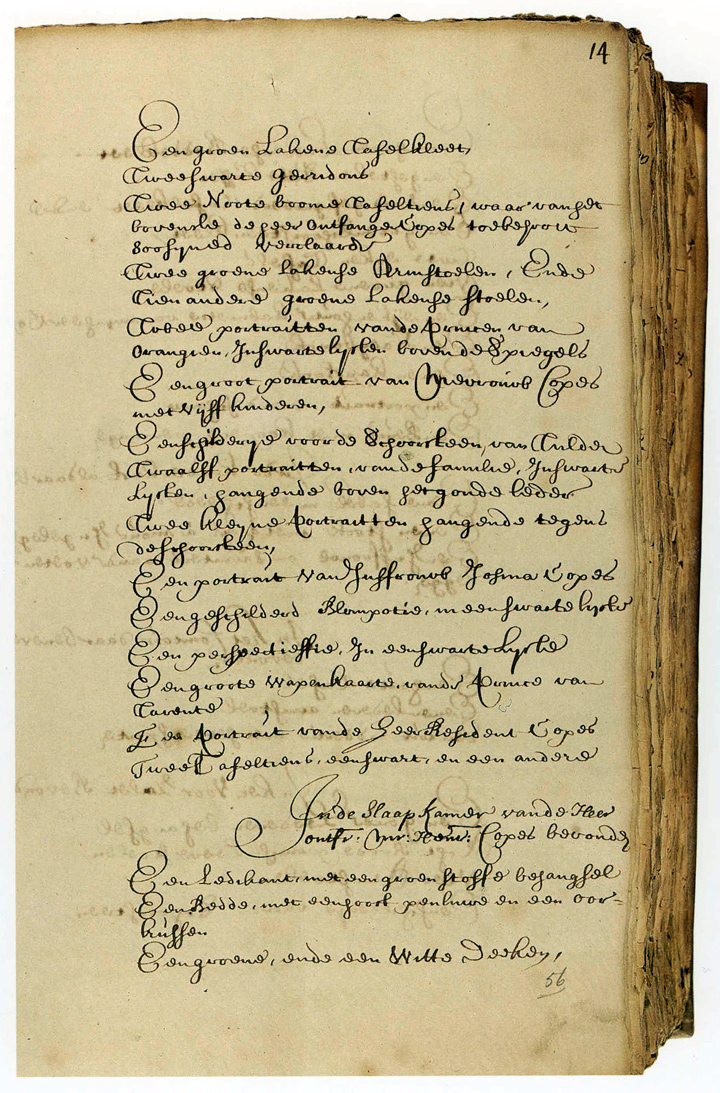 14
Een groen Lakene Tafelkleet,
Twee swarte gerridons
Twee Noote boome Tafeltiens, waar van het
bovenste de heer Ontfanger Copes toebehoort
soo hyned verclaarde
Twee groene lakense Armstoelen, Ende
Tien andere groene lakense stoelen,
Twee portraitten vande Princen van
Orangien, In swarte lysten boven de Spiegels
Een groot portrait van Mevrouw Copes
met vyff kinderen,
Een schilderye voor de Schoorsteen, van Tulden
Twaalff portraitten, vande familie, In swarte
Lysten, hangende boven het goude leder
Twee kleyne Portraitten hangende tegens
de schoorsteen,
Een portrait van Juffrouw Josina Copes
Een geschilderd Blompotie, in een swarte lyste
Een perspectieffie, In een swarte Lyste
Een groote wapenkaarte, vande Prince van
Tarente
Een Portrait vande Heer Resident Copes
Twee Tafeltiens, een swart, en een andere
Inde Slaap Kamer vande Heer
ontfr: Mr: Henr: Copes bevonden
Een Ledikant, met een groen stoffe behanghsel
Een Bedde, met een hooft peuluwe en een oor-
kussen
Een groene, ende een Witte Deeken,
56